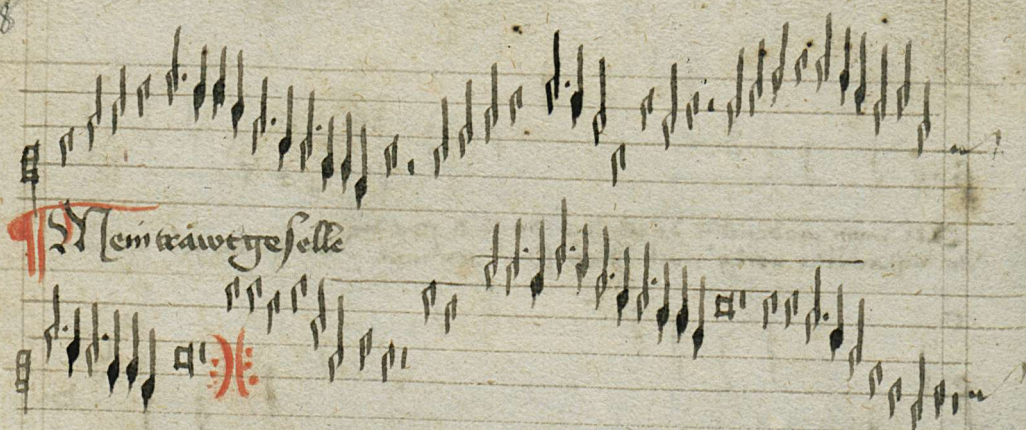 Mein trawt geselle